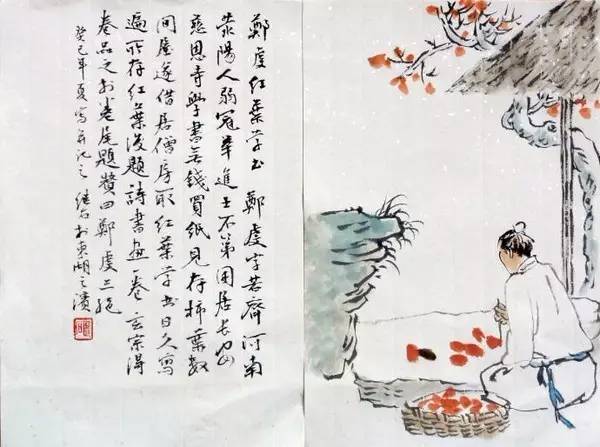 鄭虔紅葉學書 鄭虔字若齊河南
滎陽人弱冠舉進士不第困居長安
慈恩寺學書无錢買紙見存柿葉數
間屋遂借居僧房取紅葉學書日久寫
遍所存紅葉後題詩書畫一卷玄宗得
卷品之於卷尾題贊曰鄭虔三絕
癸巳年夏寫并記之 於東湖之濱